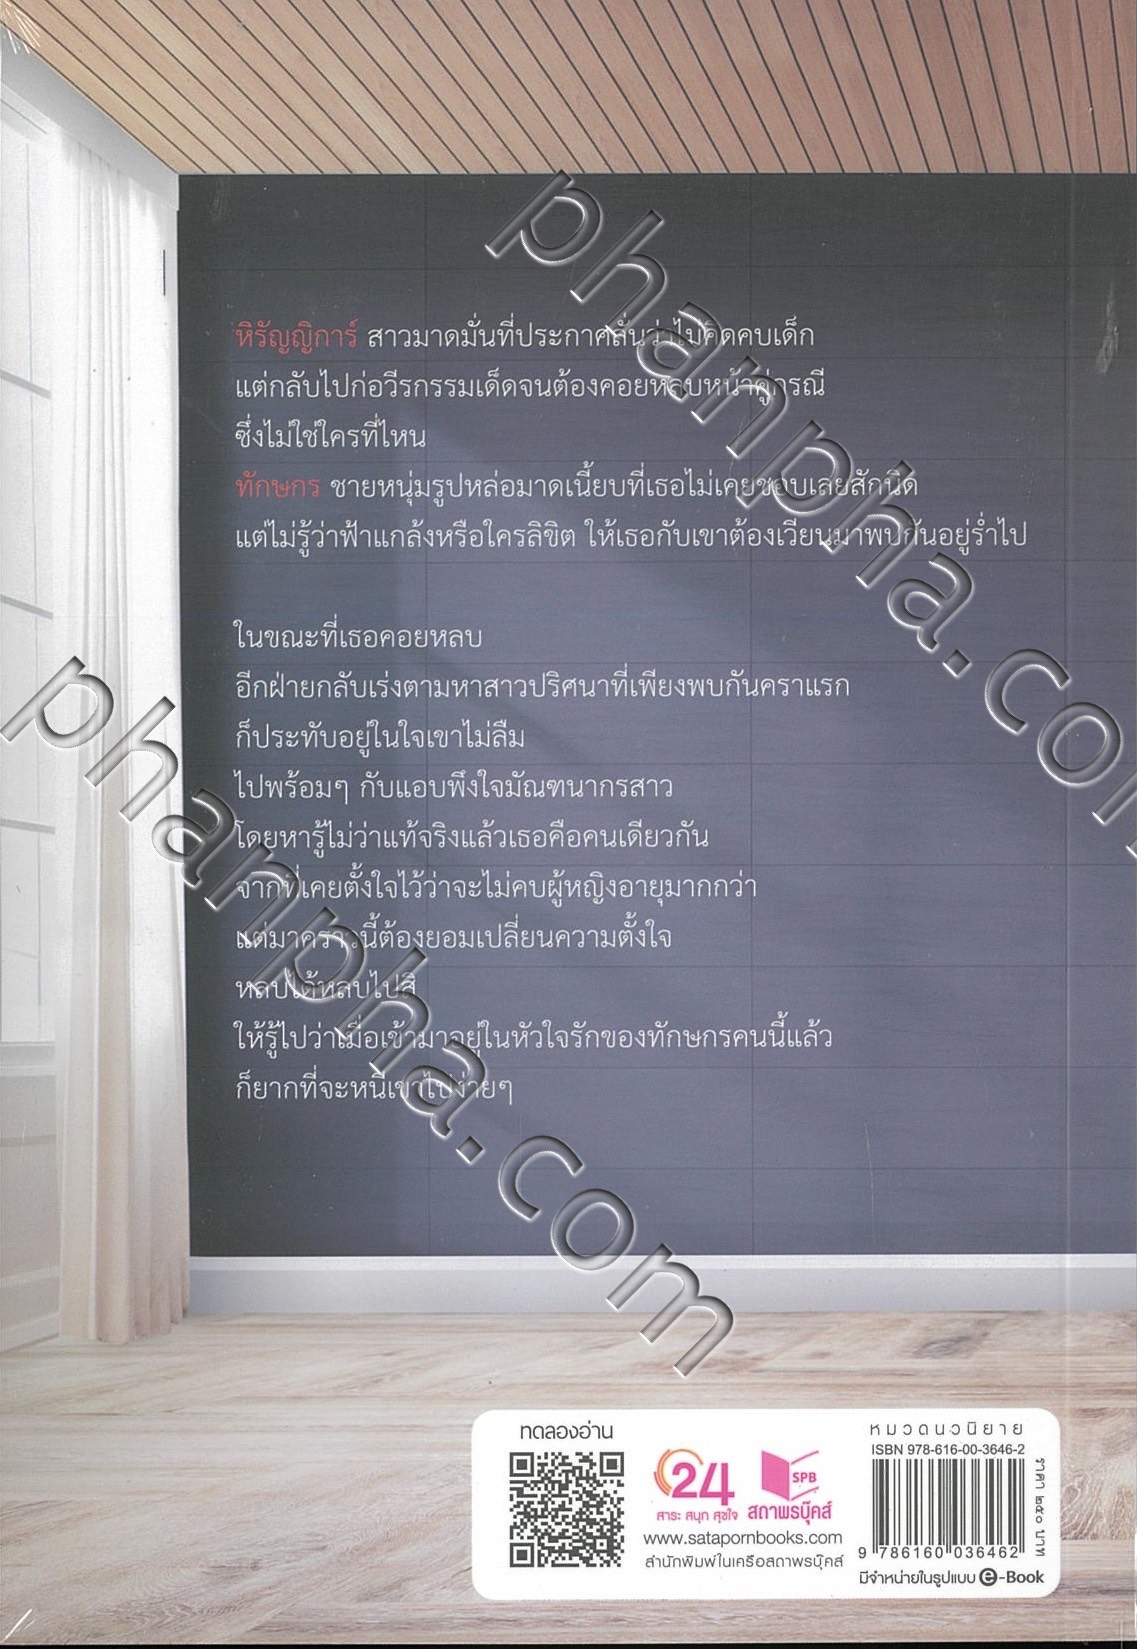 หิรัญญิการ์ สาวมาดมั่นที่ประกาศลั่นว่าไม่คิดคบเด็ก
แต่กลับไปก่อวีรกรรมเด็ดจนต้องคอยหลบหน้าคู่กรณี
ซึ่งไม่ใช่ใครที่ไหน
ทักษกร ชายหนุ่มรูปหล่อมาดเนี้ยบที่เธอไม่เคยชอบเลยสักนิด
แต่ไม่รู้ว่าฟ้าแกล้งหรือใครลิขิต ให้เธอกับเขาต้องเวียนมาพบกันอยู่ร่ำไป
ในขณะที่เธอคอยหลบ
อีกฝ่ายกลับเร่งตามหาสาวปริศนาที่เพียงพบกันคราแรก
ก็ประทับอยู่ในใจเขาไม่ลืม
ไปพร้อมๆ กับแอบพึงใจมัณฑนากรสาว
โดยหารู้ไม่ว่าแท้จริงแล้วเธอคือคนเดียวกัน
จากที่เคยตั้งใจไว้ว่าจะไม่คบผู้หญิงอายุมากกว่า
แต่มาคราวนี้ต้องยอมเปลี่ยนความตั้งใจ
หลบได้หลบไปสิ
ให้รู้ไปว่าเมื่อเข้ามาอยู่ในหัวใจรักของทักษกรคนนี้แล้ว
ก็ยากที่จะหนีเขาไปง่ายๆ
phanpha.com
phanpha.com
ทดลองอ่าน
24
สาระ สนุก สุขใจ
SPB
สถาพรบุ๊คส์
www.satapornbooks.com
สำนักพิมพ์ในเครือสถาพรบุ๊คส์
หมวดนวนิยาย
ISBN 978-616-00-3646-2
9 786160 036462
ราคา ๒๕๐ บาท
มีจำหน่ายในรูปแบบ e-Book